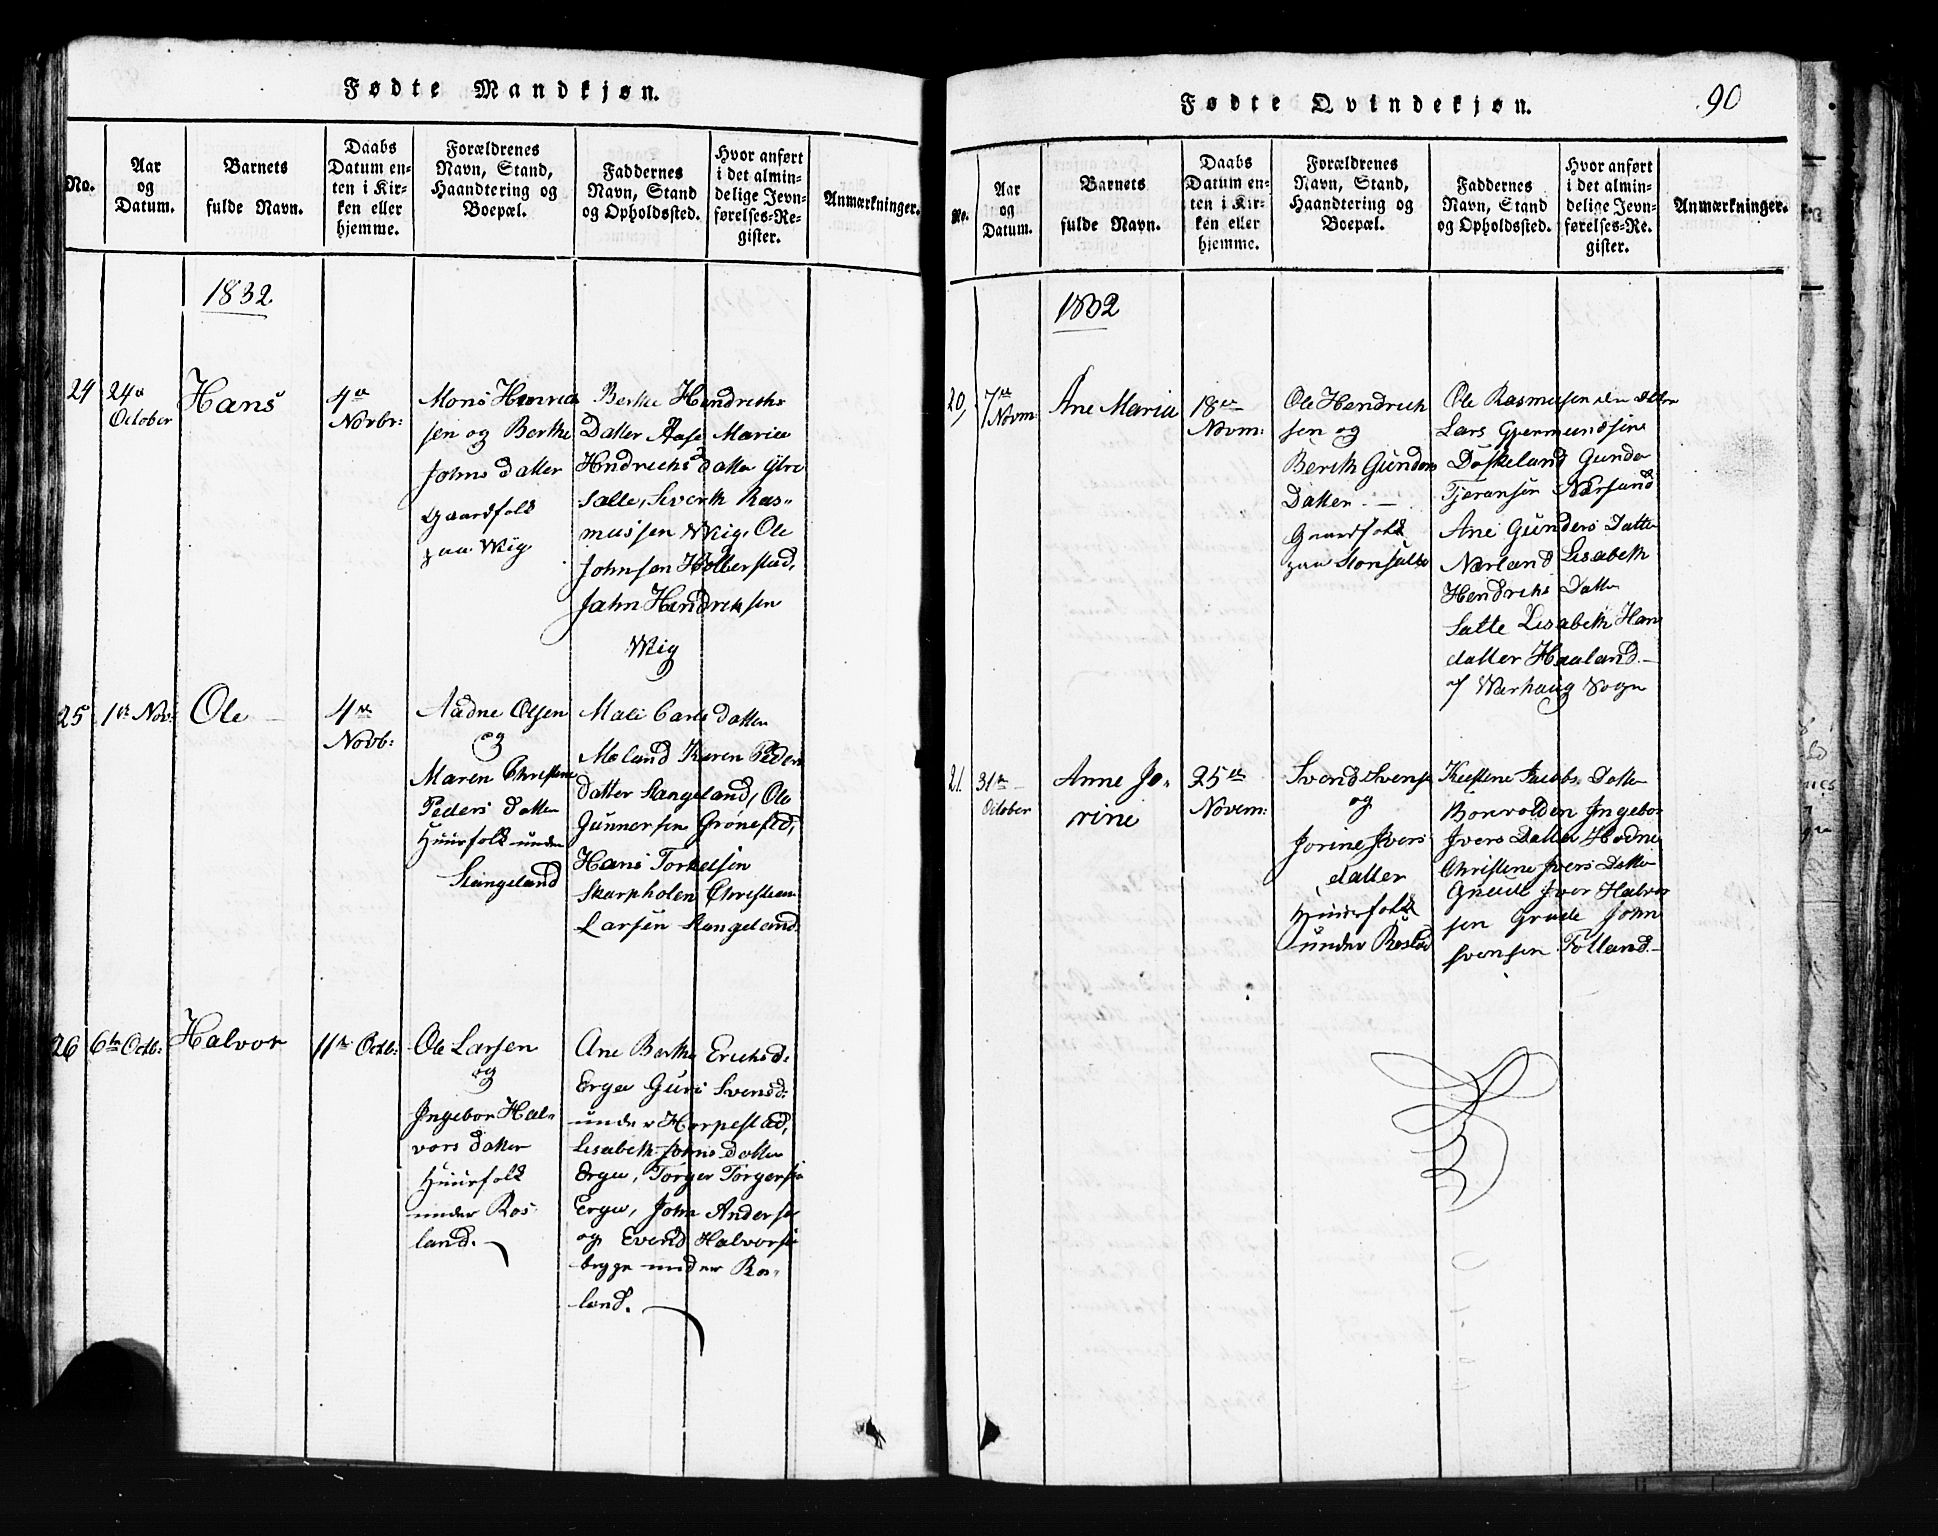 Fødte Mandkjøn.
No.
Aar
og
Datum.
Barnets
fulde Navn.
Daabs
Datum en-
ten i Kir-
ken eller
hjemme.
Forældrenes
Navn, Stand,
Haandtering og
Boepæl.
Faddernes
Navn, Stand
og Opholdssted.
Hvor anført
i det almin-
delige Jevn-
førelses-Re-
gister.
Anmærkninger.
1832
24
24de
October
Hans
4de
Novbr:
Mons Henrick
sen og Berthe
Johns datter
Gaardfolk
paa Wiig
Berthe Hendrichs
Datter Aase Maria
Hndrichs datter ytre
Salte, Siverth Ras-
mussen Wiig, Ole
Johnsen Holberstad,
John Hendrichsen
Wiig
25
1te Nov:
Ole
4de
Novb:
Aadne Olsen
og
Maren Christine
Peders datter
Huusfolk under
Stangeland
Mali Carls datter
Meland Karen Peders
datter Stangeland, Ole
Gunnersen Grønestad,
Hans Torkelsen
Skarpholen Christian
Larsen Stangeland
26
6te Octb:
Halvor
11te Octb:
Ole Larsen
og
Ingebor Hal-
vors datter
Huusfolk
under Ros-
land.
Ane Berthe Erichsd:
Erga Guri Svensd:
under Horpestad,
Lisabeth Johns datter
Erga, Torger Torgersen
Erga, John Anders
og Evend Halvorsen
begge under Ros-
land.
Fødte Qvindekjøn.
90
No.
Aar
og
Datum.
Barnets
fulde Navn.
Daabs
Datum en-
ten i Kir-
ken eller
hjemme.
Forældrenes
Navn, Stand,
Haandtering og
Boepæl.
Faddernes
Navn, Stand
og Opholdssted.
Hvor anført
i det almin-
delige Jevn-
førelses-Re-
gister.
Anmærkninger.
1832
20,
7de
Novm:
Ane Maria
18de
Novm:
Ole Hendrich
sen og
Berith Gunders
Datter. —
Gaardfolk
paa Storsalte
Ole Rasmussen
Lars Gjermundsen
Døskeland Gunder
Tjeransen Nærland
Ane Gunders Datter
Nærland Lisabeth
Hendrichs Datter
Salte Lisabeth Hans
datter Haaland.
af Warhaug Sogn
21.
31te
October
Anne Jo-
rine
25de
Novem:
Svend Svens
og
Jorine Ivers
datter
Huusfolk
under Rosland
Kirstene Jacobs Datter
Borevolden Ingebor
Ivers Datter Hodne
Christine Ivers Datter
Grude Iver Halvor
sen Grude John
Svensen Tolland.